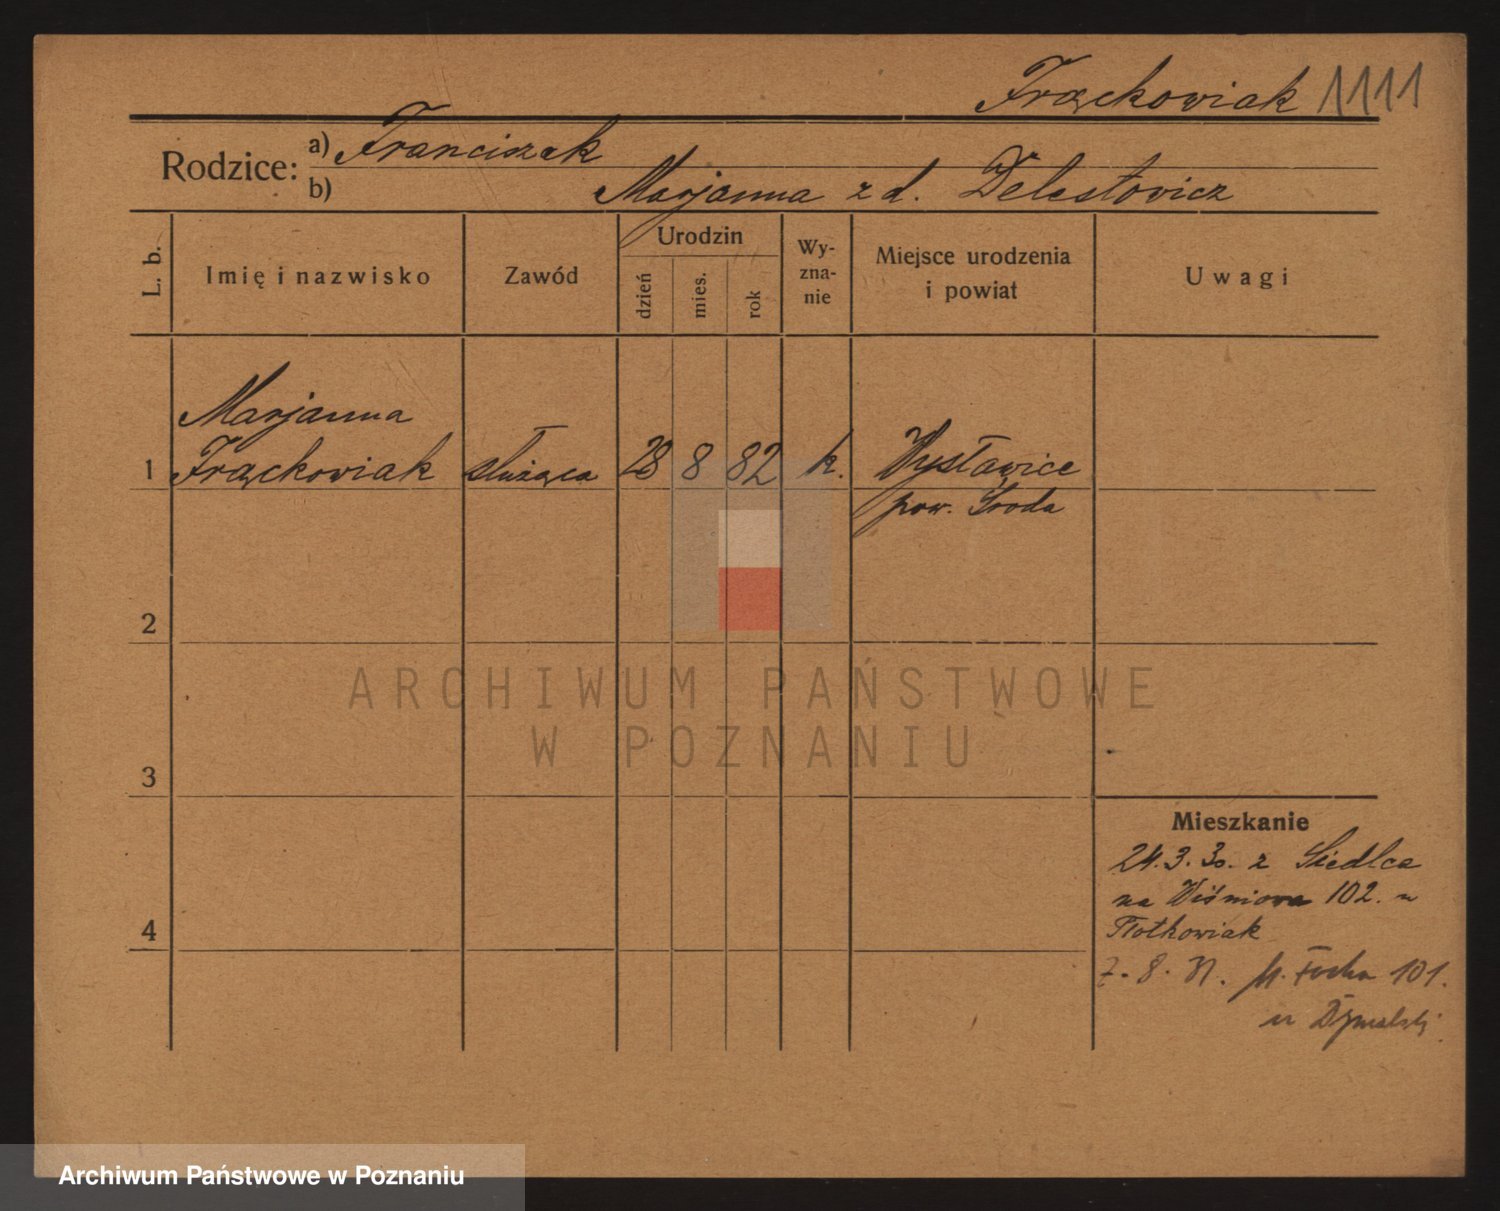 Frąckowiak 1111
Rodzice: a) Franciszek
b) Marjanna z d. Delestowicz
L. b. Imię i nazwisko Zawód Urodzin dzień mies. rok Wy-zna-nie Miejsce urodzenia i powiat Uwagi
Marjanna
1 Frąckowiak służąca 28 8 82 k. Wysławice
pow. Środa
2
ARCHIWUM PAŃSTWOWE
W POZNANIU
3
Mieszkanie
24.3.30. z Siedlca
na Wiśniowa 102. u
4
7. 8. 31. M. Focha 101.
u
Archiwum Państwowe w Poznaniu